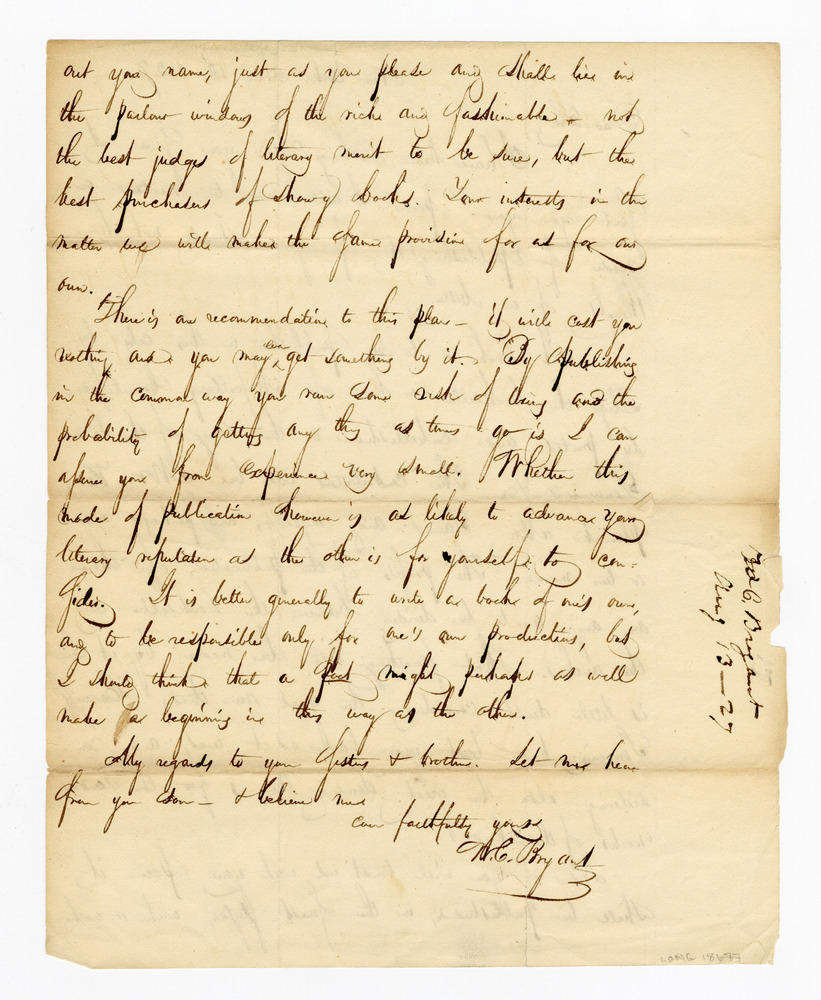 out your name, just as you please and shall lie in
the parlour windows of the rich and fashionable - not
the best judges of literary merit to be sure, but the
best purchasers of showy books. Your interests in the
matter we will make the same provision for as for our
own.
There is one recommendation to this plan - it will cost you
nothing and you may even get something by it. By publishing
in the common way you run some risk of losing and the
probability of getting any thing as times go is I can
assure you from experience very small. Whether this
mode of publication however is as likely to advance your
literary reputation as the other is for yourself to con=
sider. It is better generally to write a book of one's own,
and to be responsible only for one's own productions, but
I should think that a Poet might perhaps as well
make a beginning in this way as the other.
My regards to your sisters & brother. Let me hear
from you soon - & believe me
ever faithfully yours
W. C. Bryant
W. C. Bryant
Aug 13 - 27
LONG 18675